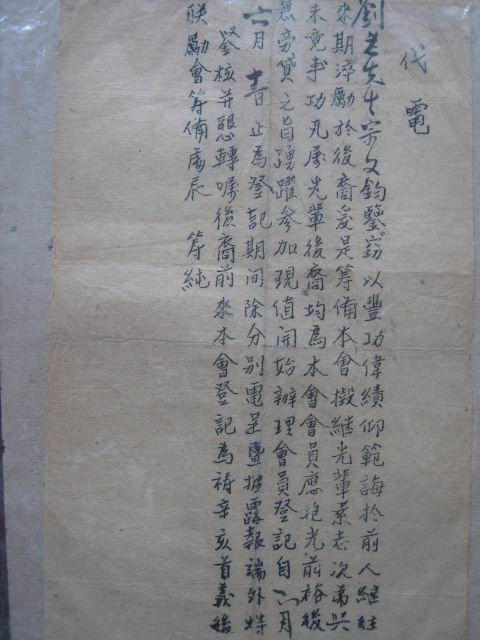 代電
劉先生宗文鈞鑒竊以豐功偉績仰範誨於前人繼往
來期淬勵於後裔爰是籌備本會擬繼光輩素志次第與
未竟事功凡屬光輩後裔均為本會會員應抱光前裕後
無旁貸之旨踴躍參加現值開始辦理會員登記自六月
六月十二日止為登記期間除分別電呈暨披露報端外特
鑒核并懇轉囑後裔前來本會登記為禱辛亥首義後
聯勵會籌備處辰 籌純